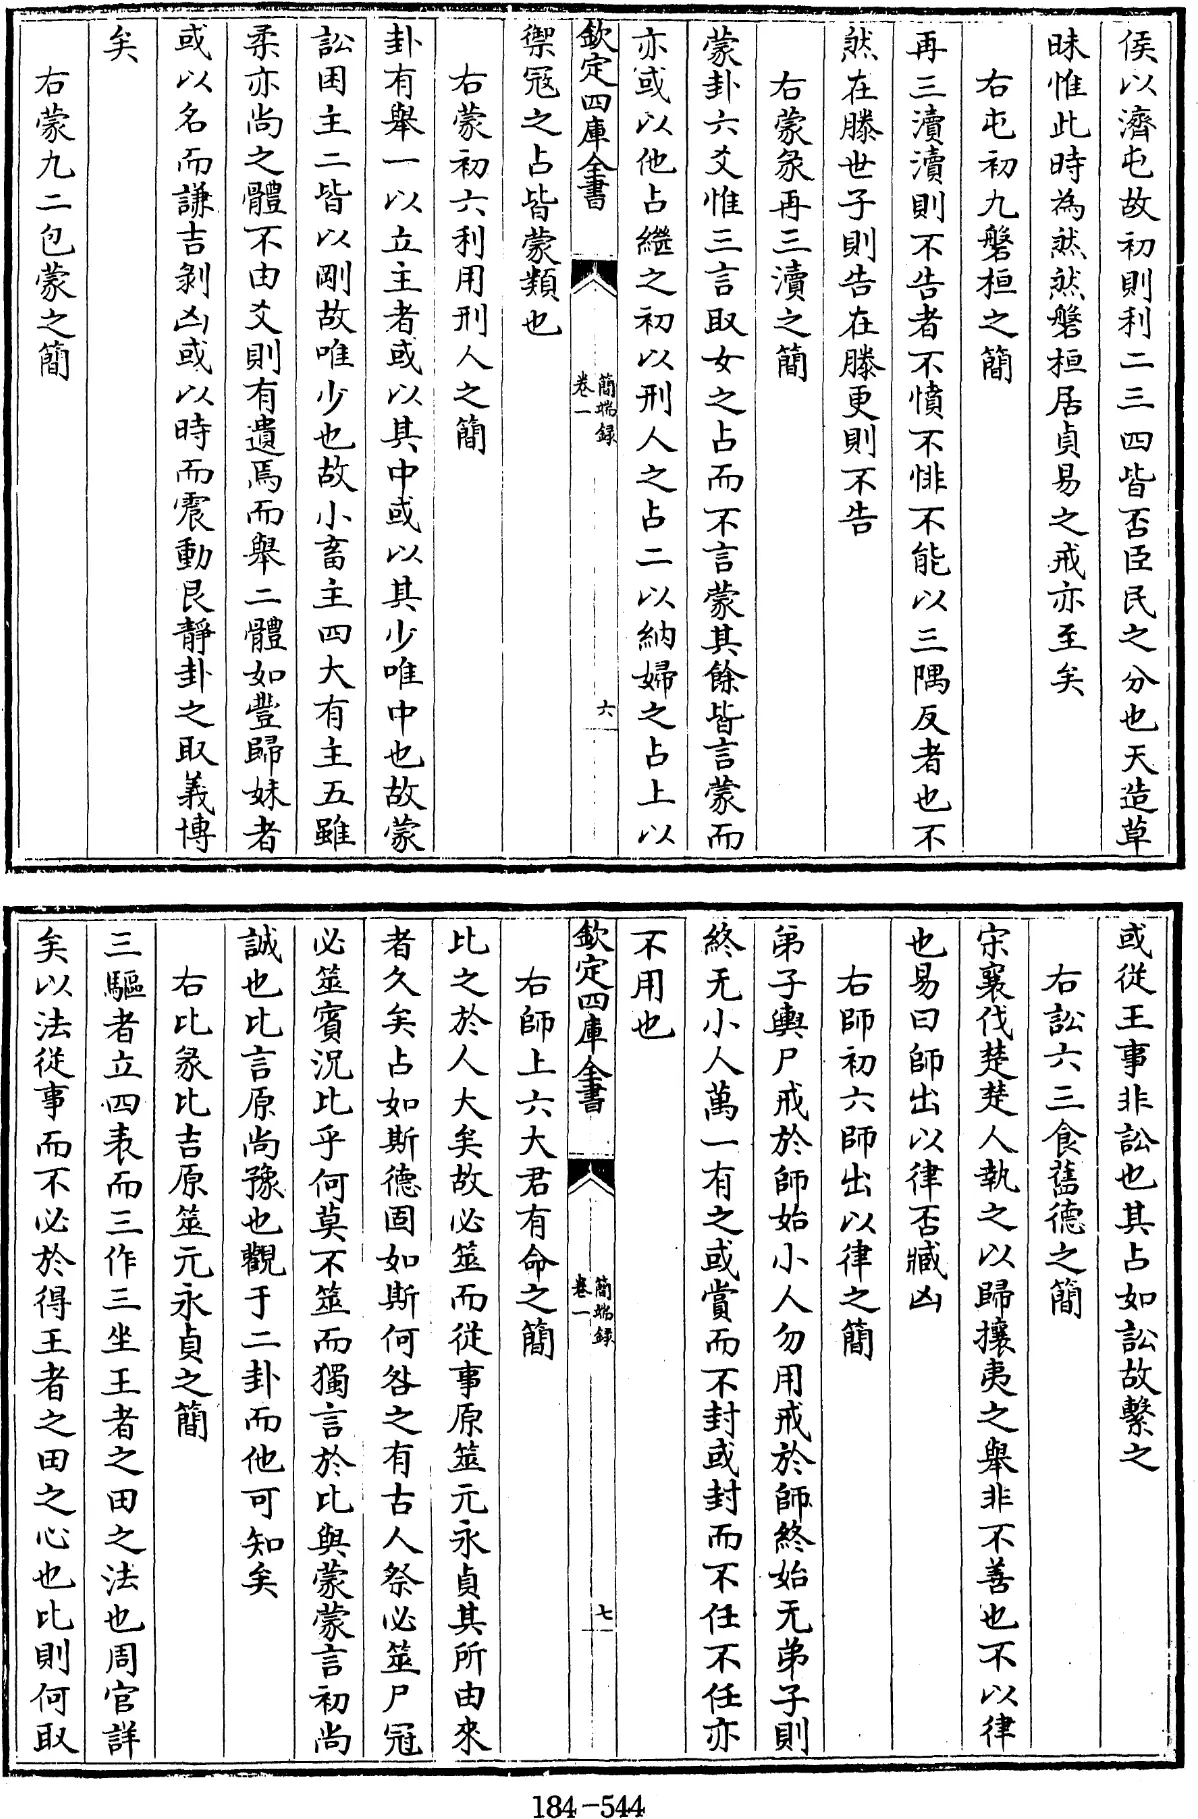 侯以濟屯故初則利二三四皆否臣民之分也天造草
昧惟此時為然然磐桓居貞易之戒亦至矣
右屯初九磐桓之簡
再三瀆瀆則不告者不憤不悱不能以三隅反者也不
然在滕世子則告在滕更則不告
右蒙彖再三瀆之簡
蒙卦六爻惟三言取女之占而不言蒙其餘皆言蒙而
亦或以他占繼之初以刑人之占二以納婦之占上以
欽定四庫全書
簡端録
卷一
六
禦冦之占皆蒙類也
右蒙初六利用刑人之簡
卦有舉一以立主者或以其中或以其少唯中也故蒙
訟困主二皆以剛故唯少也故小畜主四大有主五雖
柔亦尚之體不由爻則有遺焉而舉二體如豐歸妹者
或以名而謙吉剝凶或以時而震動艮靜卦之取義博
矣
右蒙九二包蒙之簡
或從王事非訟也其占如訟故繫之
右訟六三食舊德之簡
宋襄伐楚楚人執之以歸攘夷之舉非不善也不以律
也易曰師出以律否臧凶
右師初六師出以律之簡
弟子輿尸戒於師始小人勿用戒於師終始无弟子則
終无小人萬一有之或賞而不封或封而不任不任亦
不用也
欽定四庫全書
簡端録
卷一
七
右師上六大君有命之簡
比之於人大矣故必筮而從事原筮元永貞其所由來
者久矣占如斯德固如斯何咎之有古人祭必筮尸冠
必筮賓況比乎何莫不筮而獨言於比與蒙蒙言初尚
誠也比言原尚豫也觀于二卦而他可知矣
右比彖比吉原筮元永貞之簡
三驅者立四表而三作三坐王者之田之法也周官詳
矣以法從事而不必於得王者之田之心也比則何取
184-544